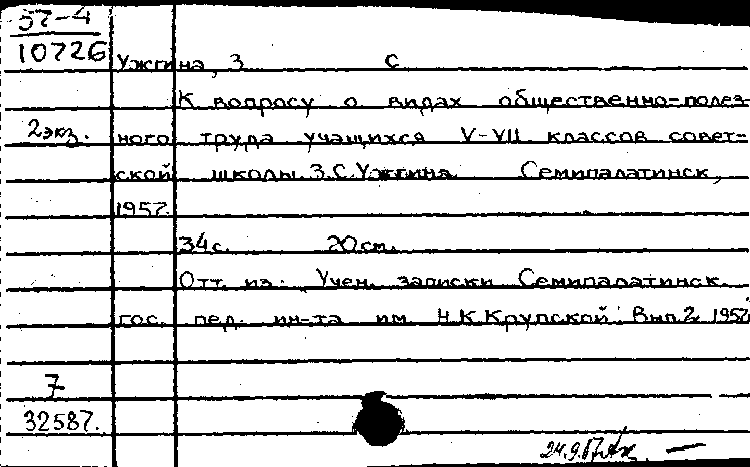 57-4
10726
Ужгина, З С
К вопросу о видах общественно-полез-
2экз. ного труда учащихся V-VII классов совет-
ской школы. З.С.Ужгина. Семипалатинск,
1957.
34с. 20см.
Отт. из: Учен. записки Семипалатинск.
гос. пед. ин-та им. Н.К.Крупской. Вып.2, 1957
7
32587.
24.9.57